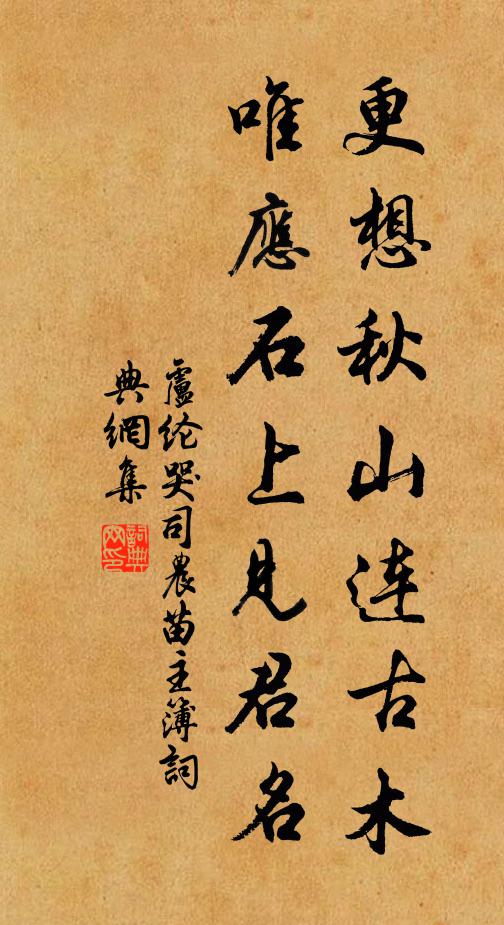 更想秋山连古木
唯應石上見君名
盧纶哭司農苗主簿詞
典網集
詞典网印